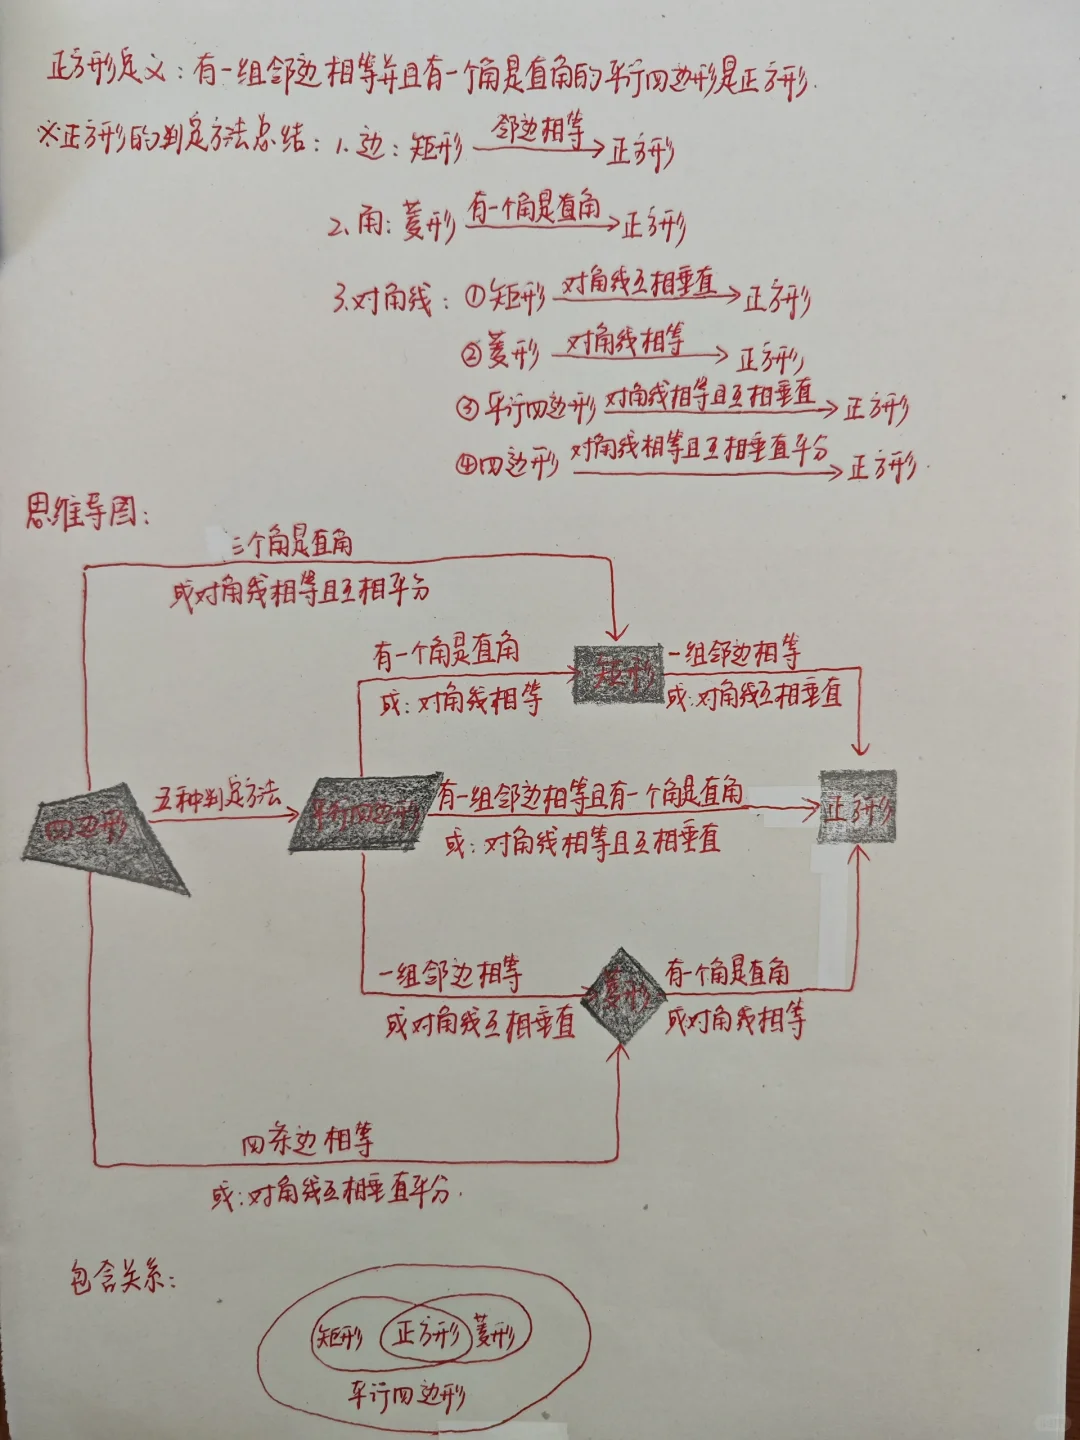 正方形定义：有一组邻边相等并且有一个角是直角的平行四边形是正方形.
※正方形的判定方法总结：1.边：矩形 邻边相等 正方形
2.角：菱形 有一个角是直角 正方形
3.对角线：①矩形 对角线互相垂直 正方形
②菱形 对角线相等 正方形
③平行四边形 对角线相等且互相垂直 正方形
④四边形 对角线相等且互相垂直平分 正方形.
思维导图：
三个角是直角
或对角线相等且互相平分
有一个角是直角
或：对角线相等
矩形
一组邻边相等
或：对角线互相垂直
四边形
五种判定方法
平行四边形
有一组邻边相等且有一个角是直角
或：对角线相等且互相垂直
正方形
一组邻边相等
或对角线互相垂直
菱形
有一个角是直角
或对角线相等
四条边相等
或：对角线互相垂直平分.
包含关系：
矩形 正方形 菱形
平行四边形